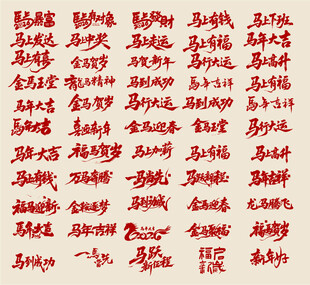 馬上暴富 馬上有对象 馬上發財 马上有钱 马上下班
马上发达 马上中奖 马上走运 马上有福 马年大吉
马上有喜 金马贺岁 马年大吉 马行大运 马上高升
金马玉堂 龙马精神 马到成功 马年吉祥 马上有福
马年大吉 金马贺岁 马行大运 金马玉堂 马年吉祥
马年大吉 喜迎新年 金马迎春 马到成功 马行大运
马年大吉 福马贺岁 马上加薪 马上有福 马上高升
马上有钱 万马奔腾 一马当先 马跃新程 马年吉祥
福马迎新 金鞍逐梦 马到功成 金马迎春 龙马腾飞
马年大吉 马年吉祥 2026 金马承福 福马贺岁
马到成功 一马当先 马跃新征程 福启新岁 新年好